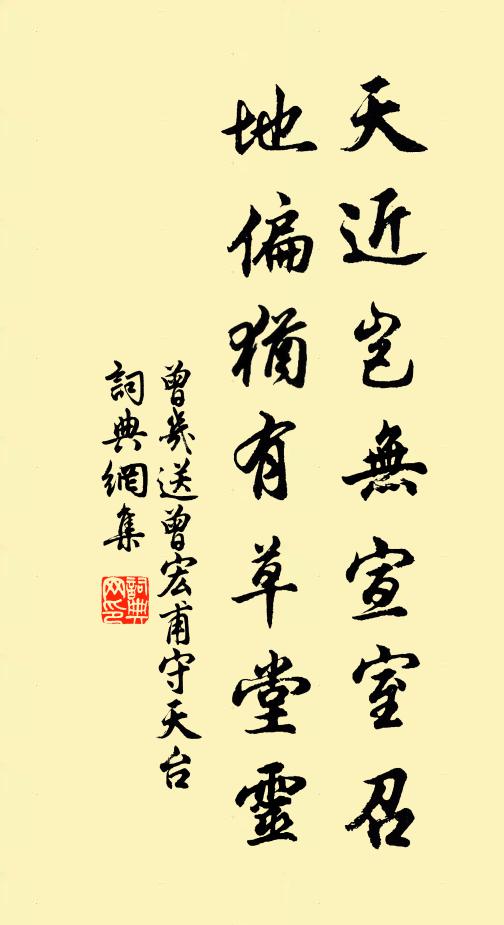 天近豈無宣室召
地偏猶有草堂靈
曾幾送曾宏甫守天台
詞典網集
詞典網印